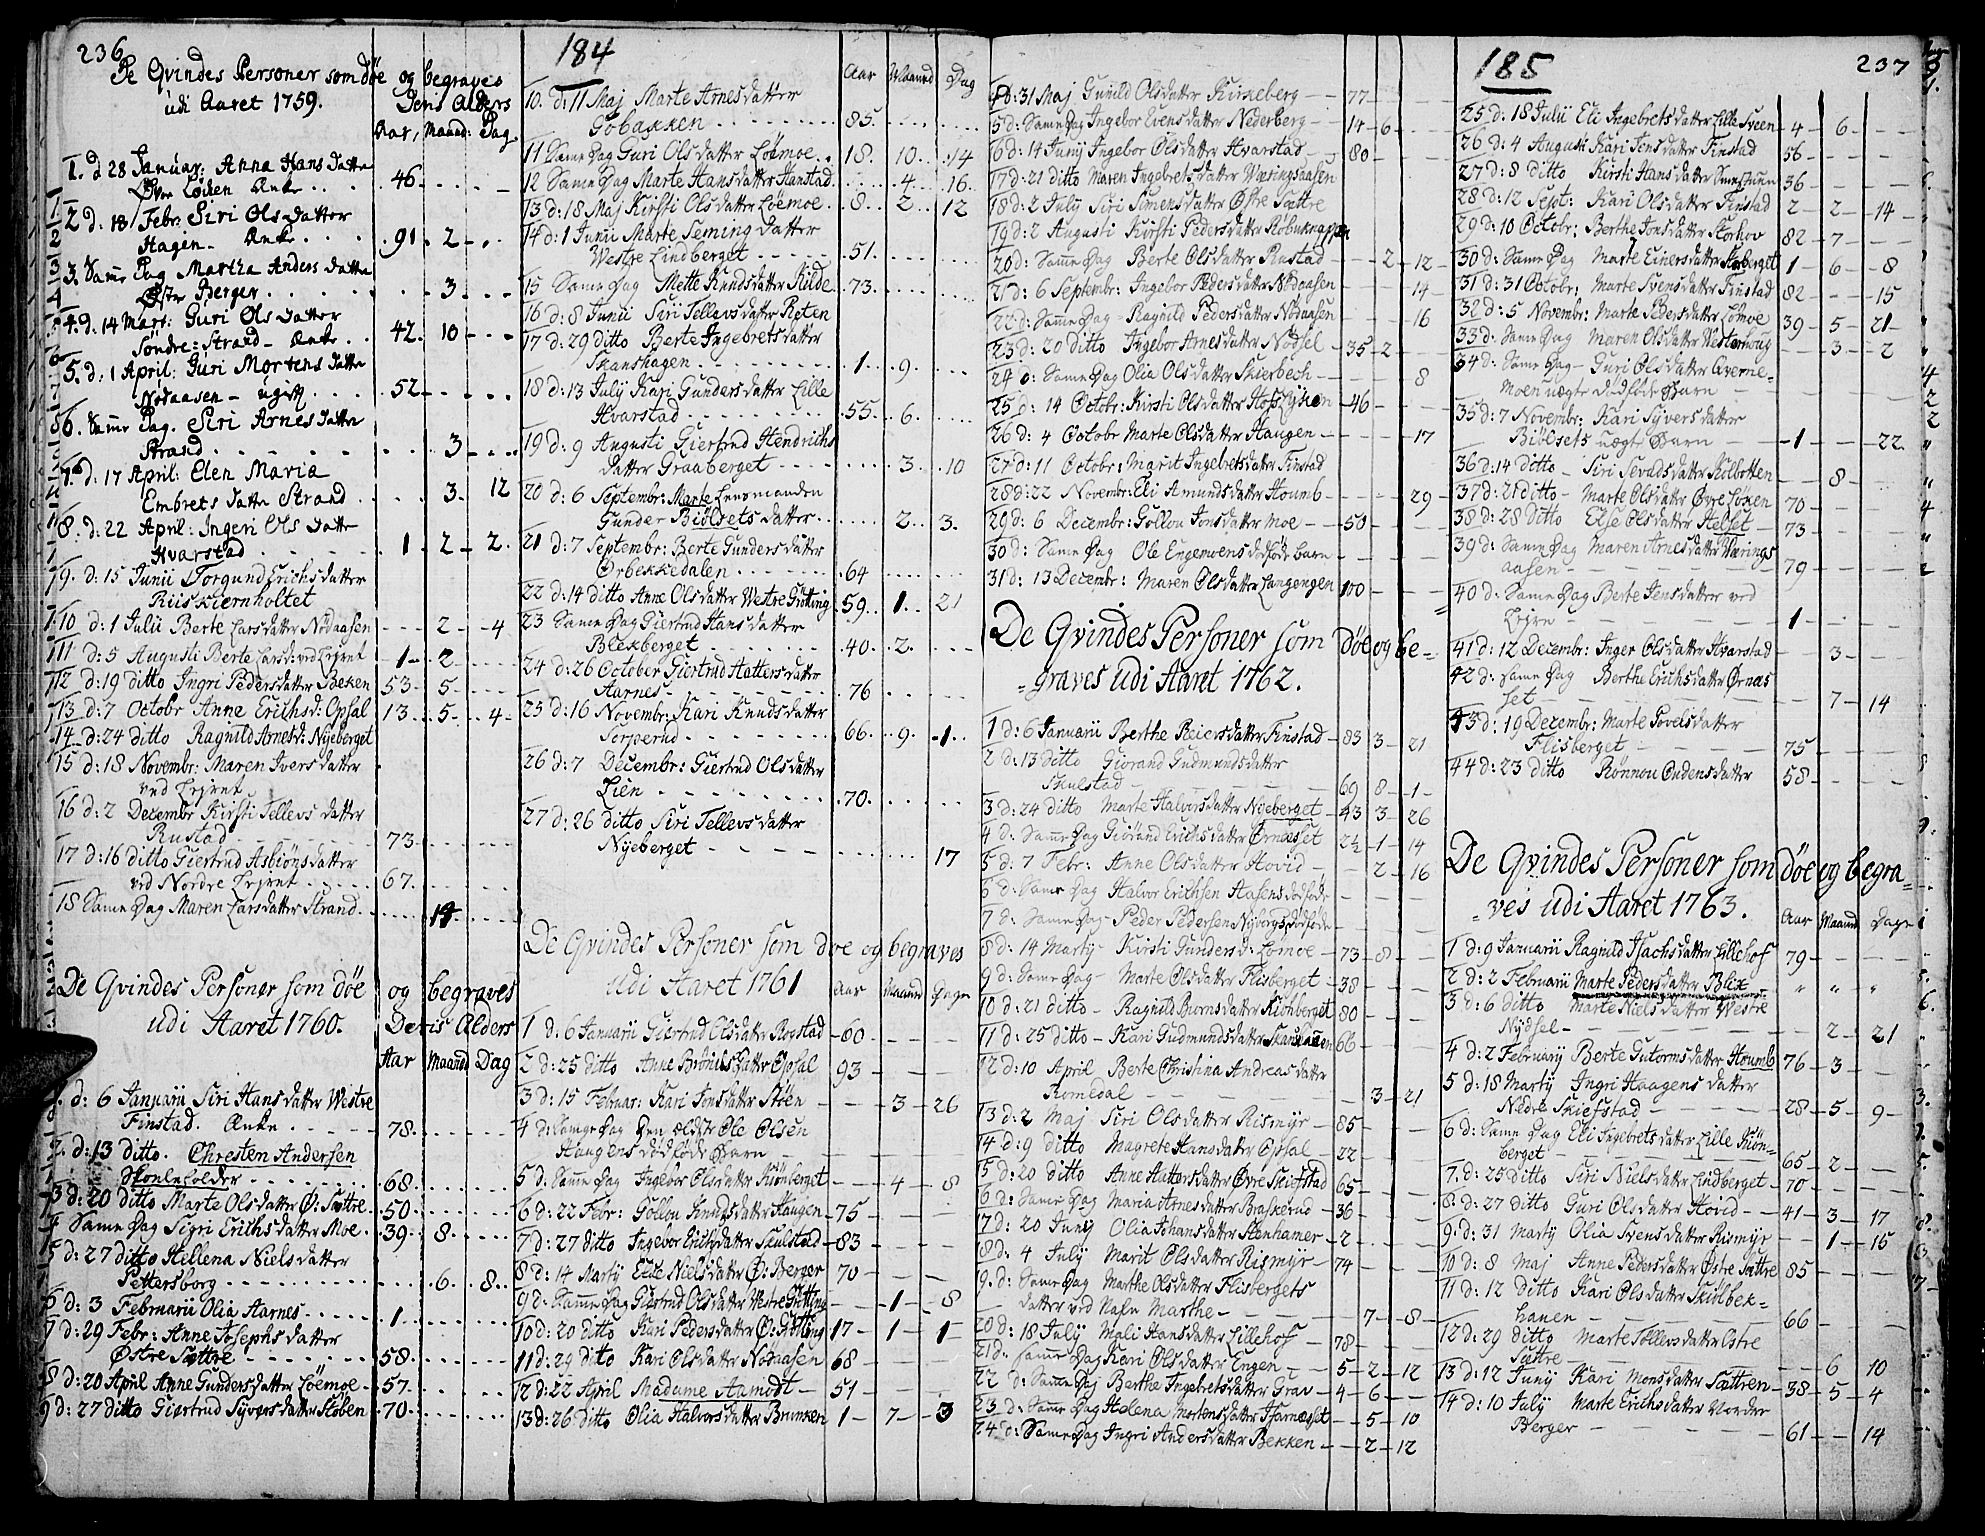 236
De Qvindes Personer som døe og begraves
udi Aaret 1759. Deris Alders
Aar, Maand: Dag.
1. d 28 Januar: Anna Hans datter
Øvre Løken Enke . . 46
2 d. 18 Febr: Siri Ols datter
Hagen - Enke . . . 91. 2
3. Samme Dag Martha Anders datter
Østre Berger . . . 3
4. d. 14 Mars: Guri Ols datter
Søndre: Strand - Enke . . 42. 10
5. d: 1 April: Guri Mortens datter
Nødaasen - ugift . . 52
6. Samme Dag. Siri Arnes datter
Strand . . . 3
7. d. 17 April: Elen Maria
Embrets datter Strand . . 3. 12
8. d: 22 April: Ingeri Ols datter
Hvarstad . . 1 2 2.
9. d: 15 Junii Torgund Erichs datter
Riiskiernholtet
10 d: 1 Julii Berte Lars datter Nødaasen - 2 - 4
11 d: 5 Augusti Berte Larsd: ved Lejret - 1 - 2
12 d: 19 ditto Ingri Peders datter Beken 53 - 5
13 d: 7 Octobr Anne Erichsd: Opsal 13. 5 - 4
14 d: 24 ditto Ragnild Arnesd: Nyeberget
15 d: 18 Novembr: Maren Ivers datter
ved Lejret
16 d: 2 Decembr Kirsti Tellevs datter
Rustad - 73
17 d: 16 ditto Giertrud Asbiøns datter
ved Nordre Lejret . . 67.
18 Same Dag Maren Lars datter Strand . . 14
De Qvindes Personer som døe og begraves
udi Aaret 1760. Deris Alders
Aar Maand Dag
1. d: 6 Januarii Siri Hans datter Westre
Finstad. Enke . . 78.
2. d: 13 ditto. Chresten Andersen
68
3 d: 20 ditto Marte Ols datter Ø: Sættre . 50
4 Same Dag Sigri Erichs datter Moe . 39 8
5 d: 27 ditto Hellena Niels datter
Pettersborg . . 6 8
6 d: 3 Februarii Olia Aarnes . . 1
7 d: 29 Febr: Anne Josephs datter
Østre Sættre . . 58
8 d: 20 April Anne Gunders datter Løemoe . 57
9 d: 27 ditto Giertrud Syvers datter Støben . 70
184
Aar Maand Dag
10. d: 11 Maj Marte Arnes datter
Gobakken . . 85.
11 Same Dag Guri Ols datter Løemoe . 18. 10. 14
12 Same Dag Marte Hans datter Hanstad . . 4. 16.
13 d: 18 Maj Kirsti Ols datter Løemoe . 8. 2. 12
14 d: 1 Junii Marte Fleming datter
Westre Lindberget . . 51.
15 Same Dag Mette Knuds datter Kilde . 73.
16 d: 8 Junii Siri Tellevs datter Reten
17 d: 29 ditto Berte Ingebrets datter
Skanshagen . . 1. 9.
18 d: 13 July Kari Gunders datter Lille
Hvarstad . . 55. 6.
19 d. 9 Augusti Giertrud Hendrichs
datter Graaberget . . 3. 10
20 d: 6 Septembr: Marte Lensmanden
Gunder Biølsets datter . . 2. 3.
21 d: 7 Septembr: Berte Gunders datter
Ørbekkedalen . . 64
22 d: 14 ditto Anne Ols datter Westre Grøtting . 59. 1. 21
23 Same Dag Giertrud Hans datter
Blekberget . . 40. 2.
24 d: 26 October Giertrud Hatters datter
Aarnes . . 76
25 d: 16 Novembr: Kari Knuds datter
Sorperud . . 66. 9. 1.
26 d: 7 Decembr: Giertrud Ols datter
Lien . . 70.
27 d: 26 ditto Siri Tellevs datter
Nyeberget . . 17
De Qvindes Personer som døe og begraves
udi Aaret 1761 Aar Maand Dage
1 d. 6 Januarii Giertrud Ols datter Rogstad - 60
2 d: 25 ditto Anne Brønilds datter Opsal 93
3 d: 15 Februar: Kari Jons datter Støen - 3 - 26
4 d: Samme Dag Den ældste Ole Olsen
Haugens dødføde Barn
5 d: Samme Dag Ingebor Ols datter Kiønberget - 4 - 8
6 d: 22 Febr: Gollou Knuds datter Haugen - 75
7 d: 27 ditto Ingebor Erichs datter Skulstad - 83
8 d: 14 Martj Elle Niels datter Ø: Berger 70
9 d: Samme Dag Giertrud Ols datter Westre Grøtting - 1 - 8
10 d: 20 ditto Kari Peders datter Ø: Grøtting 17 - 1 - 1
11 d: 29 ditto Kari Ols datter Nødaasen 68
12 d: 22 April Madame Aamodt - 51
13 d: 26 ditto Olia Halvors datter Brunken 1 - 7 - 3
4 d: 31 Maj Gunild Ols datter Kirkeberg - 77
5 d: Same Dag Ingebor Evens datter Nederberg - 14 - 6
6 d: 14 Junij Ingebor Ols datter Hvarstad - 80
17 d: 21 ditto Maren Ingebrets datter Væringsaasen
18 d: 2 July Siri Simens datter Østre Sættre
19 d: 2 Augusti Kirsti Peders datter Røbuknappen
20 d: Samme Dag Berte Ols datter Rustad - 2 - 12
21 d: 6 Septembr: Ingebor Peders datter Nødaasen - 14
22 d: Samme Dag - Ragnild Peders datter Nødaasen - 16
23 d: 20 ditto Ingebor Arnes datter Nødsel - 35 - 2
24 d: Same Dag Olia Ols datter Skierbech - 8
25 d: 14 Octobr: Kirsti Ols datter Hofs Lyken - 46
26 d: 4 Octobr Marte Ols datter Haugen - 17
27 d: 11 Octobr: Marit Ingebrets datter Finstad
28 d: 22 Novembr: Eli Amunds datter Houmb - 29
29 d: 6 Decembr: Gollou Jons datter Moe - 50
30 d: Same Dag Ole Engemoens dødføde Barn
31 d: 13 Decembr: Maren Ols datter Langengen 100
De Qvindes Personer som døe og be=
graves udi Aaret 1762.
1 d: 6 Januarii Berthe Reiers datter Finstad - 83 3 - 21
2 d: 13 ditto Giørand Gudmunds datter
Skulstad - 69 8 - 1
3 d: 24 ditto Marte Halvors datter Nyeberget - 43 3 - 26
4 d: Samme Dag Giørand Erichs datter Ørnæsset 2½ - 1 - 14
5 d: 7 Febr: Anne Ols datter Hovid - 2 - 16
6 d: Same Dag Halvor Erichsen Aasens dødføde
7 d: Samme Dag Peder Pedersens Nybergs dødføde
8 d: 14 Martj Kirsti Gunders d: Lømoe - 73 - 8
9 d: Same Dag - Marte Ols datter Flisberget - 38
10 d: 21 ditto - Ragnild Burns datter Kiønberget 80
11 d: 25 ditto - Kari Gudmunds datter Skanshaaen 66
12 d: 10 April Berte Christina Andreas datter
Romedal - 3 - 21
13 d: 2 Maj Siri Ols datter Rismyr - 85
14 d: 9 ditto Magrete Hans datter Opsal - 22
15 d: 20 ditto Anne Hatters datter Øvre Skiefstad 65
6 d: Same Dag Maria Arnes datter Braskerud - 36
17 d: 20 Junij Olia Johans datter Stenhamer - 2
18 d: 4 July Marit Ols datter Rismyr - 74
9. d: Same Dag Marthe Ols datter Flisbergets
datter ved Nafn Marthe - 7 - 8
20 d: 18 July Mali Hans datter Lillehof - 78
21 d: Samme Dag Kari Ols datter Engen - 5 - 2 - 12
22 d: Samme Dag Berthe Ingebrets datter Grav - 4 - 6
23 d: Samme Dag Helena Mortens datter - 5 - 10
24 d: Samme Dag Ingri Anders datter Bekken - 2 - 12
185
237
25 d: 18 Julii Eli Ingebrets datter Lille Sveen - 4 - 6
26 d: 4 Augusti Kari Jens datter Finstad 56
27 d: 8 ditto Kirsti Hans datter 36
28 d: 12 Sept: Kari Ols datter Finstad 2 - 2 - 14
29 d: 10 Octobr: Berthe Jons datter Storhov 82 - 7
30 d: Same Dag Marte Einers datter Skaberget 1 - 6 - 8
31 d: 31 Octobr: Marte Svens datter Finstad 82 - 15
32 d: 5 Novembr: Marte Peders datter Lømoe 39 - 5 - 21
33 d: Same Dag Maren Ols datter Vesterhoug - 3 - 2
34 d: Same Dag - Guri Ols datter Qverne=
moen uægte dødføde Barn
35 d: 7 Novembr: Kari Syvers datter
Biølsets uægte Barn - 1 - 22
36 d: 14 ditto - Siri Sevals datter Kolbotten - 8
37 d: 21 ditto - Marte Ols datter Øvre Løken 70
38 d: 28 ditto Else Ols datter Helset - 73
39 d: Same Dag Maren Arnes datter Værings
aasen - 79
40 d: Same Dag Berte Jens datter ved
Lejre - 1
41 d: 12 Decembr: Inger Ols datter Hvarstad - 3
42 d: Same Dag Berthe Erichs datter Ørnæs
set - 7 - 14
43 d: 19 Decembr: Marte Povels datter
Flisberget - 75
44 d: 23 ditto Rønnou Endens datter 58
De Qvindes Personer som døe og begra=
ves udi Aaret 1763. Aar Maand Dage
1 d: 9 Januarii Ragnild Isachs datter Lillehof 79
2 d: 2 Februarii Marte Peders datter Blix - " " "
3 d: 6 ditto Marte Niels datter Westre
Nydsel - 2 - 21
4 d: 2 Februarij Berte Gutorms datter Houmb 76 - 3
5 d: 18 Martj Ingri Haagens datter
Nedre Skiefstad - 28 - 5 - 9
6 d: Same Dag Eli Ingebrets datter Lille Kiøn=
berget - 65 - 2
7. d: 25 ditto Siri Niels datter Lindberget - 70
8. d: 27 ditto Guri Ols datter Hovid - 41 - 3 - 17
9. d: 31 Martj Olia Svens datter Rismyr - 1 - 15
10 d: 8 Maj Anne Peders datter Østre Sættre 85
11 d: 12 ditto Kari Ols datter Skiølbek=
hauen - 66
12 d: 29 ditto Marte Tollevs datter Østre
Sættre - 6 10
13 d: 12 Junij Kari Mons datter Sættren - 38 - 5 - 4
14 d: 10 July Marte Erichs datter Nordre
Berger - 61 - 14